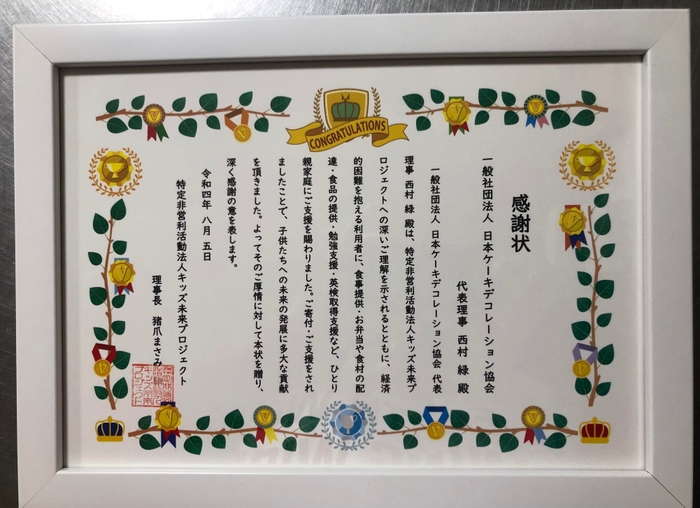 CONGRATULATIONS
感謝状
一般社団法人 日本ケーキデコレーション協会
代表理事 西村 緑 殿
一般社団法人 日本ケーキデコレーション協会 代表
理事 西村 緑 殿は、特定非営利活動法人キッズ未来プ
ロジェクトへの深いご理解を示されるとともに、経済
的困難を抱える利用者に、食事提供・お弁当や食材の配
達・食品の提供・勉強支援・英検取得支援など、ひとり
親家庭にご支援を賜わりました。ご寄付・ご支援をされ
ましたことで、子供たちへの未来の発展に多大な貢献
を頂きました。よってそのご厚情に対して本状を贈り、
深く感謝の意を表します。
令和四年 八月 五日
特定非営利活動法人キッズ未来プロジェクト
理事長 猪爪まさみ